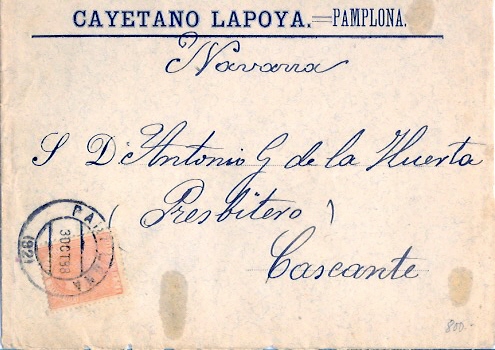 CAYETANO LAPOYA.=PAMPLONA.
Navarra
S. Dn. Antonio G de la Huerta
(Presbitero)
Cascante
PAMPLONA
3 OCT 88
(92)
800-